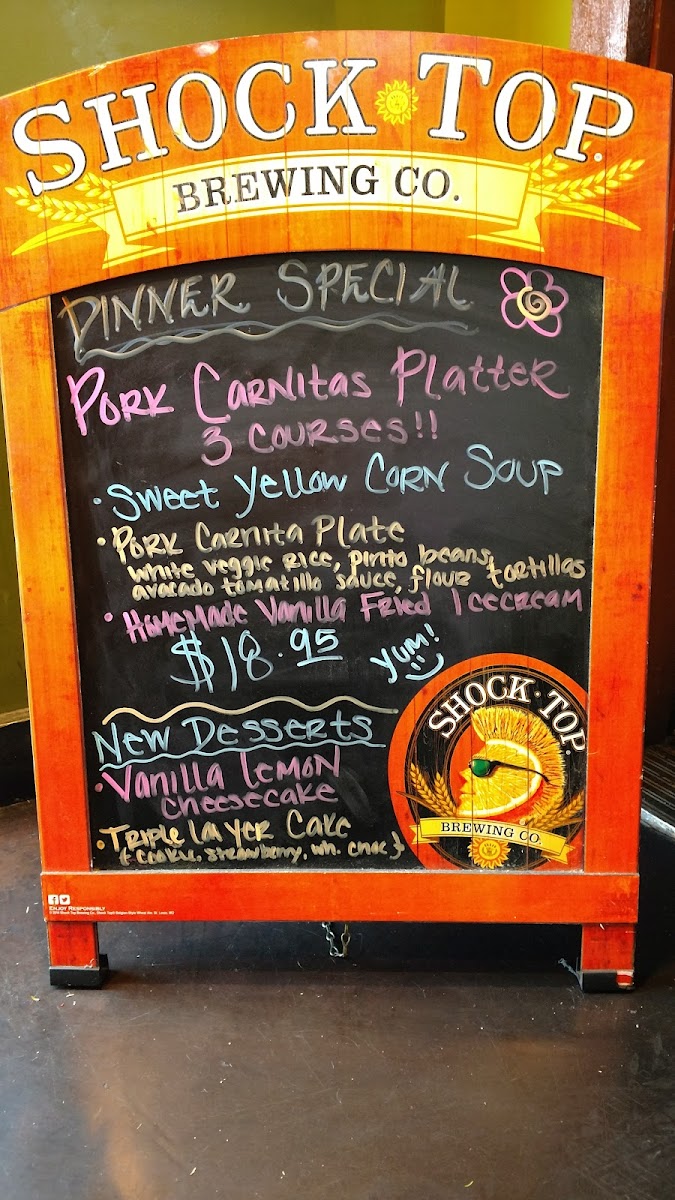 SHOCK TOP
BREWING CO.
DINNER SPECIAL
PORK CARNITAS PLATTER
3 COURSES!!
• Sweet Yellow CORN SOUP
• PORK CARNITA PLATE
white veggie RICE, pinto beans,
avocado tomatillo sauce, flour tortillas
• HOMEMADE VANILLA FRIED ICECREAM
$18.95
YUM!
NEW DESSERTS
• VANILLA LEMON
CHEESECAKE
• TRIPLE LAYER CAKE
{ COOKIE, STRAWBERRY, WH. CHOC }
SHOCK·TOP
BREWING CO.
ENJOY RESPONSIBLY